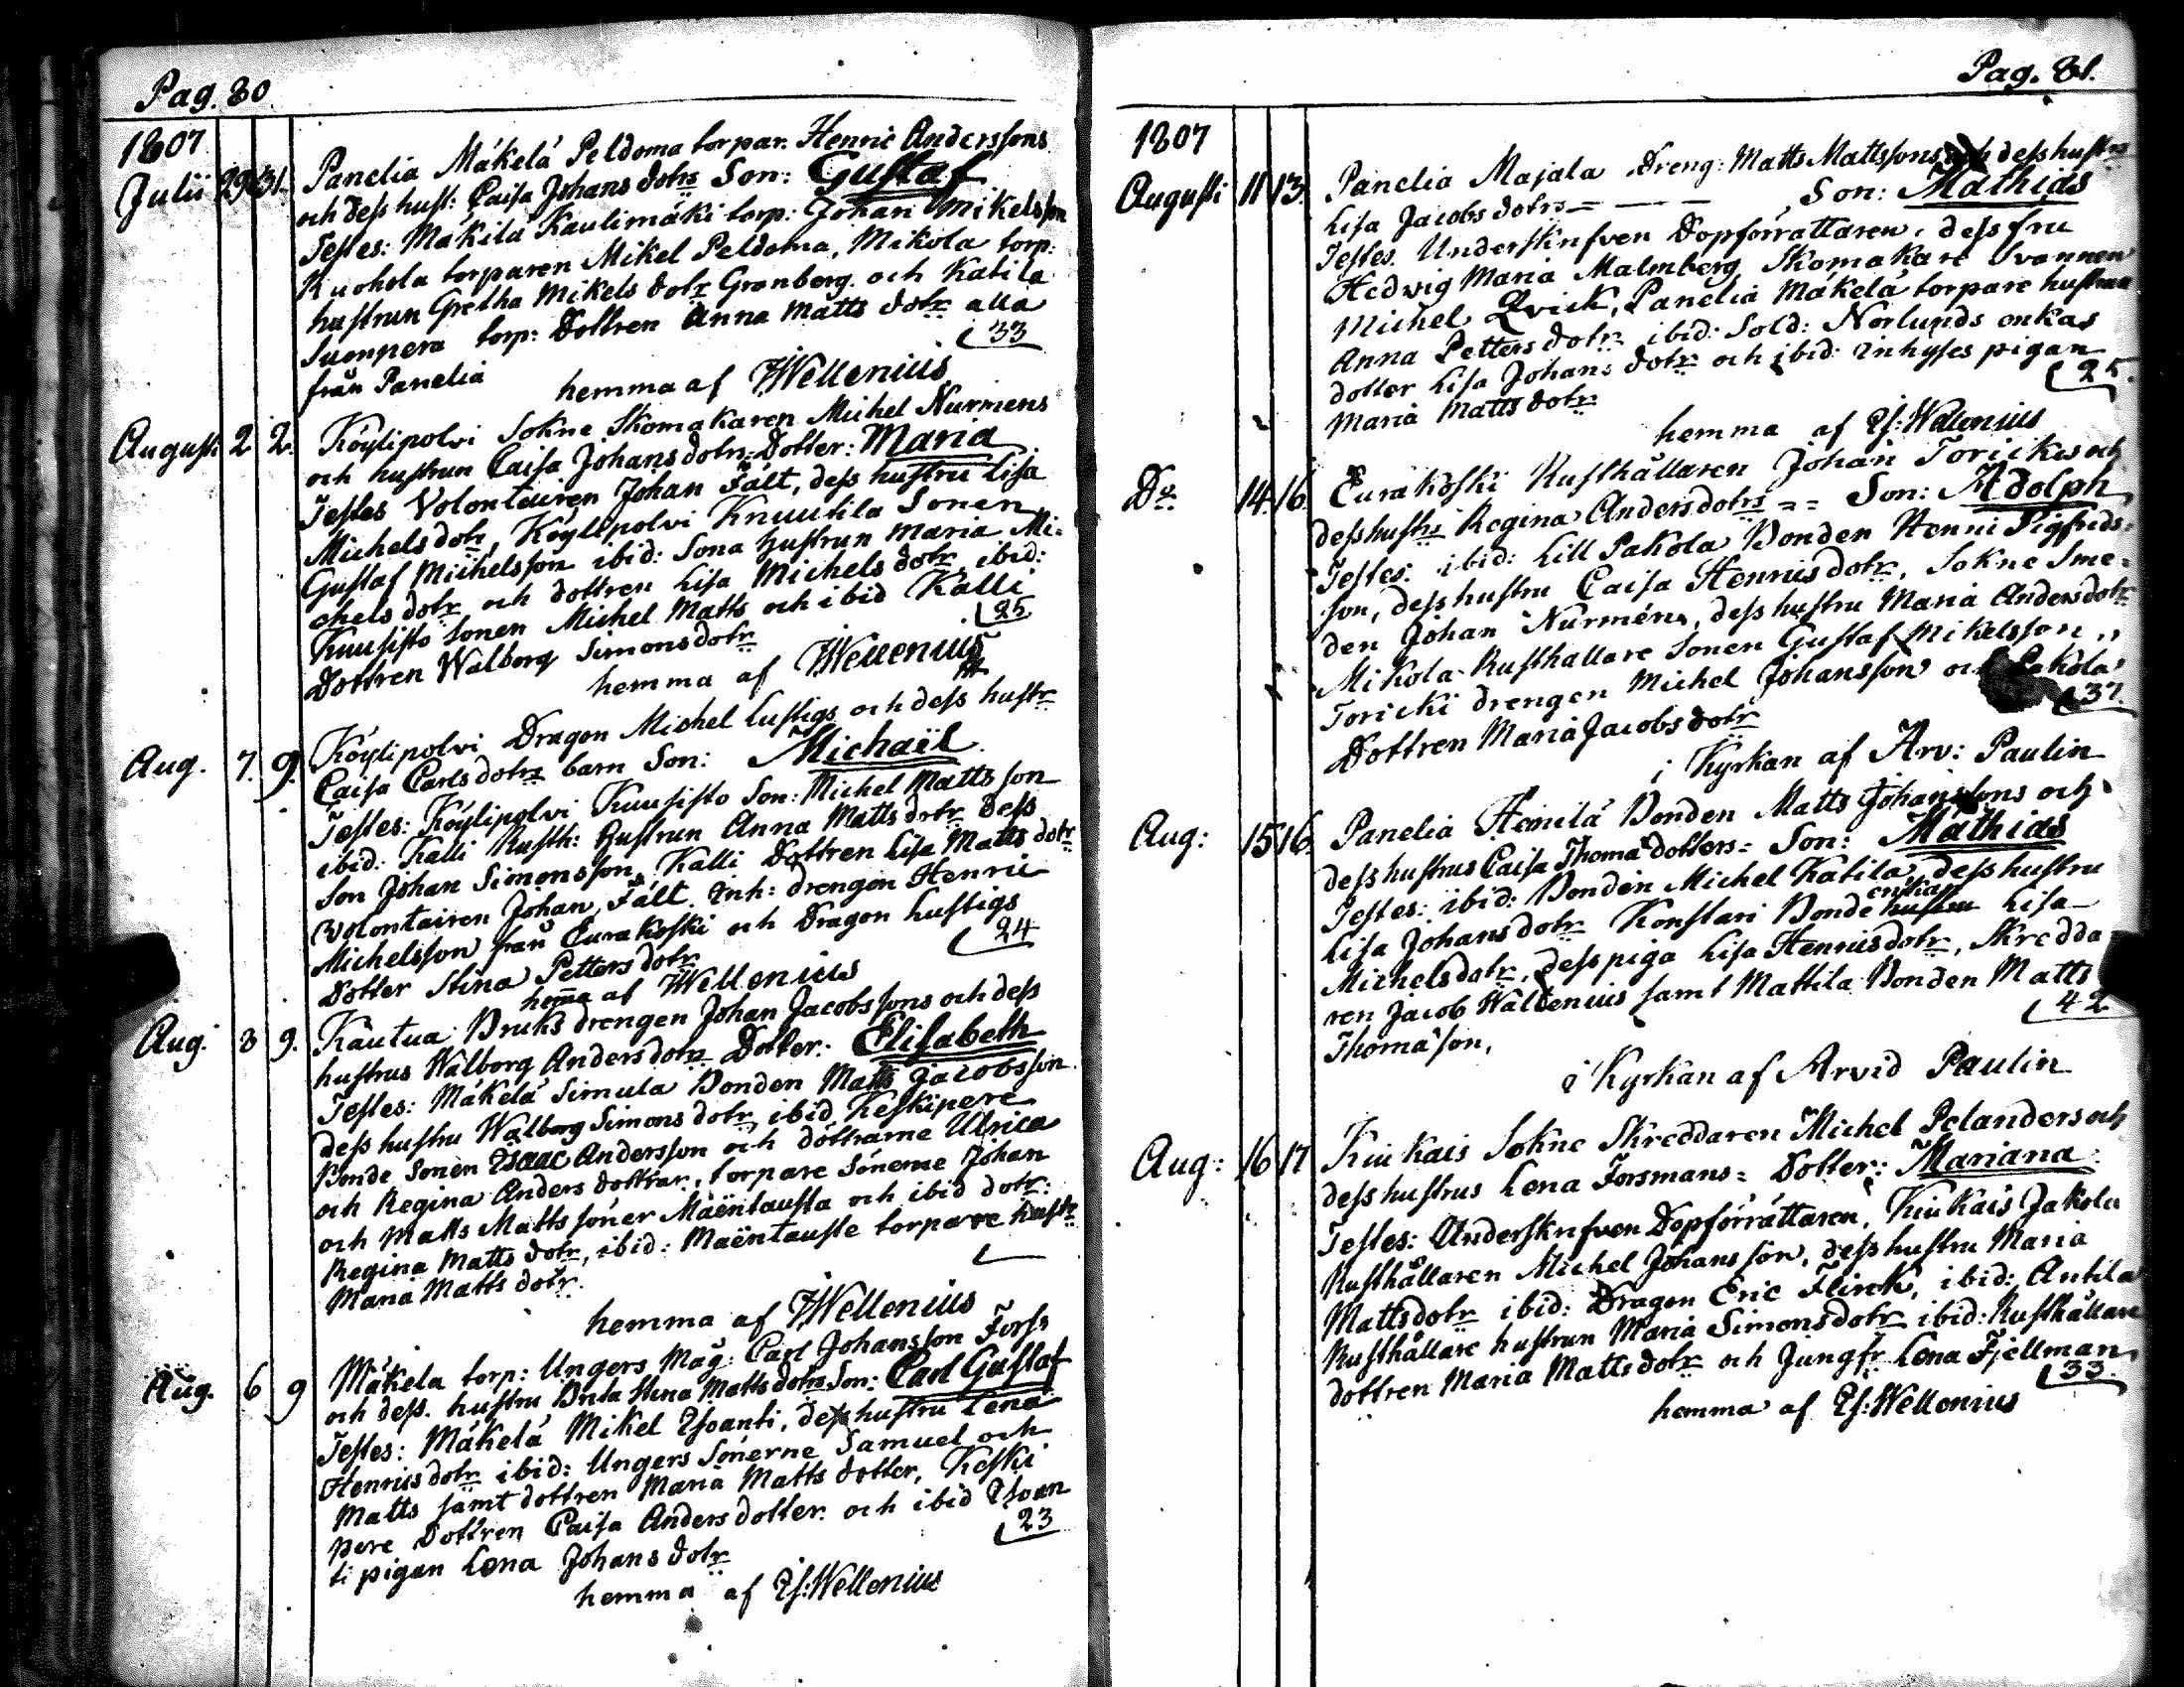 Pag. 80.
1807
Julii 29 31. Panelia Mäkelä Peldoma torpar. Henric Anderssons
och dess hust: Caisa Johans dotrs Son: Gustaf
Testes: Mäkilä Kaulimäki torp: Johan Mikelsson
Kuohola torparen Mikel Peldoma, Mikola torp:
hustrun Gretha Mikels dotr Granberg och Katila
Suonpera torp: Dottren Anna Matts dotr alla
från Panelia 33
hemma af JWellenius
Augusti 2 2. Köylipolvi Sokne Skomakaren Michel Nurmens
och hustrun Caisa Johans dotrs Dotter: Maria
Testes Volontairen Johan Fält, dess hustru Lisa
Michels dotr, Köylipolvi Knuutila Sonen
Gustaf Michelsson ibid: Sona hustrun Maria Mi-
chels dotr och dottren Lisa Michels dotr, ibid:
Kuusisto Sonen Michel Matts och ibid Kalli
Dottren Walborg Simonsdotr 25
hemma af JWellenius
Aug. 7. 9. Köylipolvi Dragon Michel Lustigs och dess hustr
Caisa Carls dotrs barn Son: Michaël
Testes: Köylipolvi Kuusisto Son: Michel Mattsson
ibid: Kalli Rusth: Hustrun Anna Matts dotr Dess
Son Johan Simonsson, Kalli Dottren Lisa Matts dotr
Volontairen Johan Fält. Inh: drengen Henric
Michelsson från Eurakoski och Dragon Lustigs
Dotter Stina Petters dotr 24
hemma af JWellenius
Aug. 8 9. Kautua Bruks drengen Johan Jacobssons och dess
hustrus Walborg Anders dotrs Dotter: Elisabeth
Testes: Mäkelä Simula Bonden Matts Jacobsson
dess hustru Walborg Simons dotr, ibid Keskipere
Bonde Sonen Isaac Andersson och döttrarne Ulrica
och Regina Anders döttrar, torpare Sönerne Johan
och Matts Matts söner Mäentausta och ibid dotr:
Regina Matts dotr, ibid: Mäentauste torpare hustr
Maria Matts dotr.
hemma af JWellenius
Aug. 6 9 Mäkela torp: Ungers Måg: Carl Johansson Forss
och dess. hustru Brita Stina Matts dotrs Son: Carl Gustaf
Testes: Mäkelä Mikel Isoanti, dess hustru Lena
Henrics dotr ibid: Ungers Sönerne Samuel och
Matts samt dottren Maria Matts dotter, Keski
pere Dottren Caisa Anders dotter och ibid Isoan
ti pigan Lena Johans dotr 23
hemma af Is: Wellenius
Pag. 81.
1807
Augusti 11 13. Panelia Majala Dreng: Matts Mattssons och dess hustrs
Lisa Jacobs dotrs Son: Mathias
Testes. Underskrifven Dopförrättaren, dess fru
Hedwig Maria Malmberg, Skomakare Svannen
Michel Qvick, Panelia Mäkelä torpare hustrun
Anna Petters dotr ibid: Sold: Norlunds enkas
dotter Lisa Johans dotr och ibid: Inhyses pigan
Maria Matts dotr 25.
hemma af Is: Wellenius
Do. 14. 16. Eurakoski Rusthållaren Johan Torickis och
dess hustrs Regina Anders dotrs = = Son: Adolph
Testes: ibid: Lill Pakola Bonden Henric Sigfrids-
son, dess hustru Caisa Henrics dotr, Sokne Sme-
den Johan Nurmén, dess hustru Maria Anders dotr
Mikola Rusthållare Sonen Gustaf Mikelsson,
Toricki drengen Michel Johansson och Pakola
Dottren Maria Jacobs dotr 37.
i Kyrkan af Arv: Paulin
Aug: 15 16. Panelia Heinilä Bonden Matts Johanssons och
dess hustrus Caisa Thomæ dotters = Son: Mathias
Testes: ibid: Bonden Michel Katila, dess hustru
Lisa Johans dotr Konstari Bonde enkan hustru Lisa
Michels dotr, dess piga Lisa Henrics dotr, Skredda
ren Jacob Wallenius samt Mattila Bonden Matts
Thomæson, 42
i Kyrkan af Arvid Paulin
Aug: 16 17 Kiukais Sokne Skreddaren Michel Pelanders och
dess hustrus Lena Forsmans = Dotter: Mariana
Testes: Underskrifven Dopförrättaren, Kiukais Jakola
Rusthållaren Michel Johansson, dess hustru Maria
Matts dotr ibid: Dragon Eric Flinck, ibid: Antila
Rusthållare hustrun Maria Simons dotr ibid: Rusthållare
dottren Maria Matts dotr och Jungfr Lena Fjellman 33.
hemma af Is: Wellenius